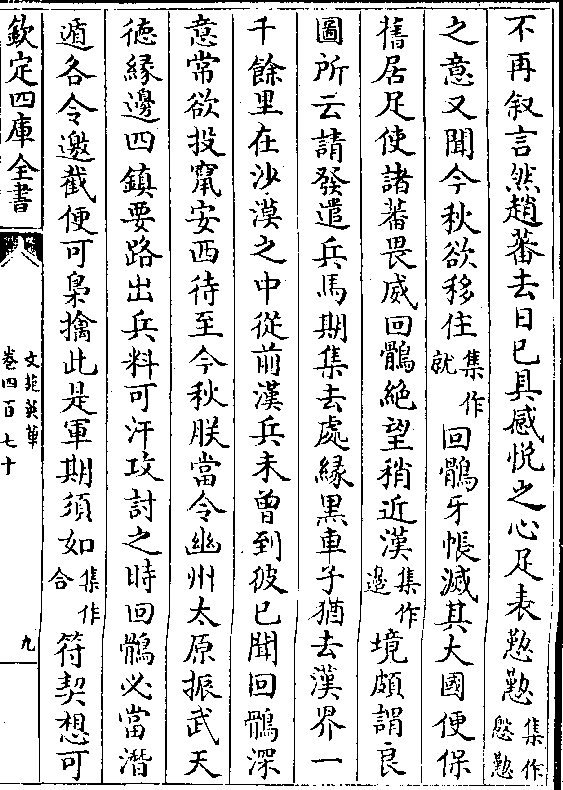 不再叙言然趙蕃去日已具感悦之心足表懃懃集作慇懃
之意又聞今秋欲移住集作就回鶻牙帳滅其大國便保
舊居足使諸蕃畏威回鶻絶望稍近漢集作邊境頗謂良
圖所云請發遣兵馬期集去處縁黒車子猶去漢界一
千餘里在沙漠之中從前漢兵未曾到彼已聞回鶻深
意常欲投竄安西待至今秋朕當令幽州太原振武天
徳縁邊四鎮要路出兵料可汗攻討之時回鶻必當潛
遁各令邀截便可梟擒此是軍期須如集作合符契想可
欽定四庫全書
文苑英華
卷四百七十
九